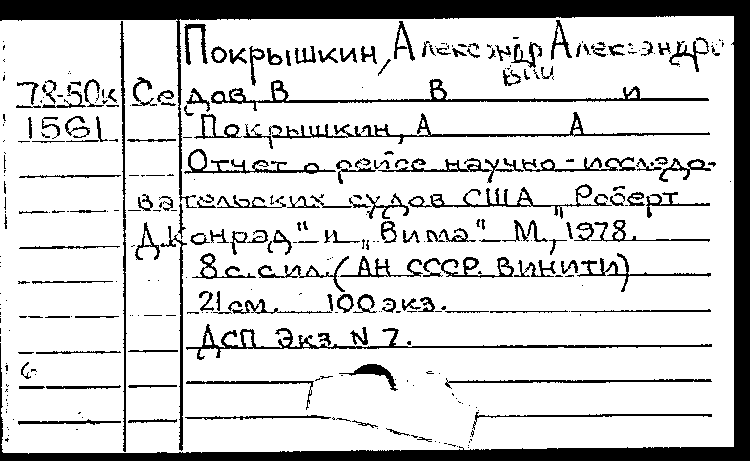 Покрышкин, Александр Александро-
вич
78-50к Седов, В В и
1561 Покрышкин, А А
Отчет о рейсе научно-исследо-
вательских судов США „Роберт
Д. Конрад“ и „Вима“ М., 1978.
8 с. с ил. (АН СССР. ВИНИТИ)
21 см. 100 экз.
ДСП Экз. N 7.
6